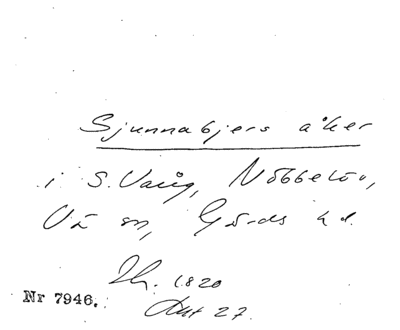 Sjunnabjers åker
i S. Vång, Nöbbelöv,
Vä sn, Gärds hd.
Sk. 1820
Akt 27.
Nr 7946.